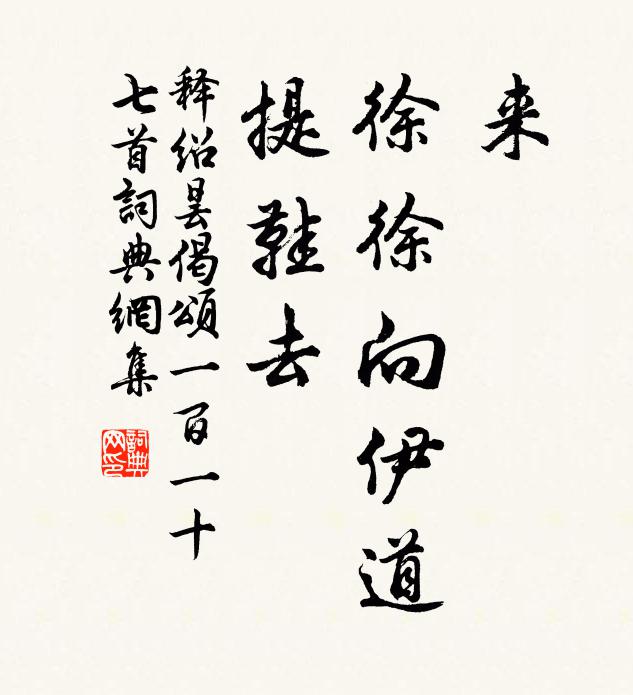 来
徐徐向伊道
提鞋去
释绍昙偈颂一百一十
七首詞典網集
詞典
网印